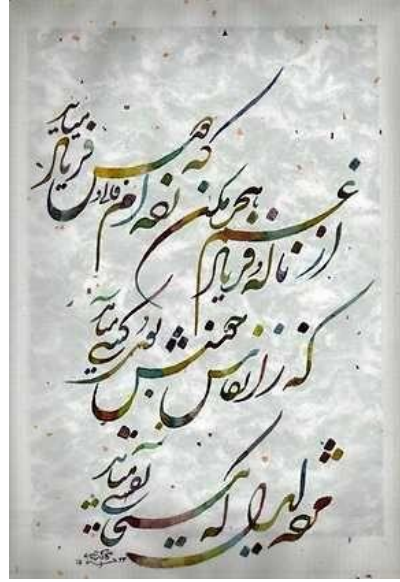 از غم هجر مکن ناله و فریاد که دوش
زده ام فالی و فریادرسی میآید
که ز انفاس خوشش بوی کسی میآید
مژده ایدل که مسیحا نفسی میآید